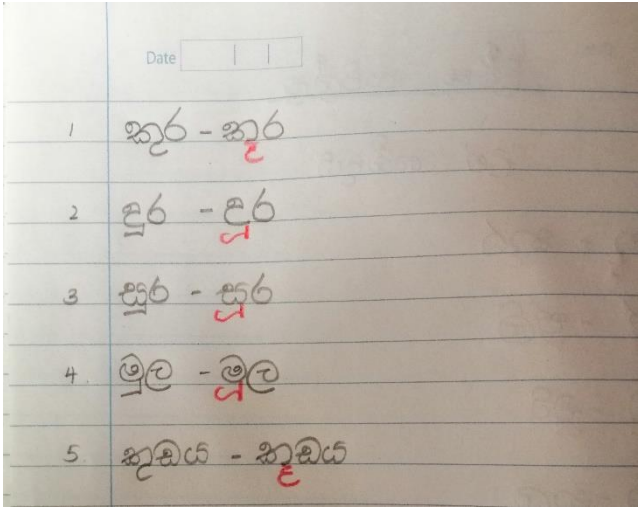 Date
1 කුර - කූර
2 පුර - පූර
3 සුර - සූර
4. මුල - මූල
5. කුඩය - කූඩය